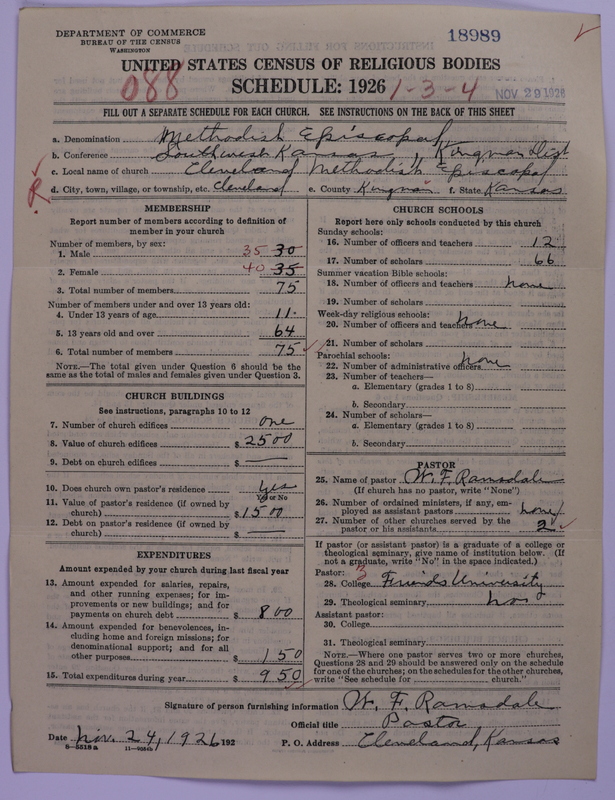 DEPARTMENT OF COMMERCE
BUREAU OF THE CENSUS
WASHINGTON
18989
UNITED STATES CENSUS OF RELIGIOUS BODIES
088
SCHEDULE: 1926
1-3-4
NOV 29 1926
FILL OUT A SEPARATE SCHEDULE FOR EACH CHURCH. SEE INSTRUCTIONS ON THE BACK OF THIS SHEET
a. Denomination Methodish Episcopal
b. Conference Southwest Kansas, Kingman Dist
c. Local name of church Cleveland Methodish Episcopal
d. City, town, village, or township, etc. Cleveland e. County Kingman f. State Kansas
R
MEMBERSHIP
Report number of members according to definition of member in your church
Number of members, by sex:
1. Male 35 30
2. Female 40 35
3. Total number of members 75
Number of members under and over 13 years old:
4. Under 13 years of age 11.
5. 13 years old and over 64
6. Total number of members 75
NOTE.—The total given under Question 6 should be the same as the total of males and females given under Question 3.
CHURCH BUILDINGS
See instructions, paragraphs 10 to 12
7. Number of church edifices one
8. Value of church edifices $ 2500
9. Debt on church edifices $ —
10. Does church own pastor's residence yes
Yes or No
11. Value of pastor's residence (if owned by church) $ 1500
12. Debt on pastor's residence (if owned by church) $ —
EXPENDITURES
Amount expended by your church during last fiscal year
13. Amount expended for salaries, repairs, and other running expenses; for improvements or new buildings; and for payments on church debt $ 800
14. Amount expended for benevolences, including home and foreign missions; for denominational support; and for all other purposes $ 150
15. Total expenditures during year $ 950
CHURCH SCHOOLS
Report here only schools conducted by this church
Sunday schools:
16. Number of officers and teachers 12
17. Number of scholars 66
Summer vacation Bible schools:
18. Number of officers and teachers none
19. Number of scholars
Week-day religious schools:
20. Number of officers and teachers none
21. Number of scholars
Parochial schools:
22. Number of administrative officers none
23. Number of teachers—
a. Elementary (grades 1 to 8)
b. Secondary
24. Number of scholars—
a. Elementary (grades 1 to 8)
b. Secondary
PASTOR
25. Name of pastor W. F. Ramsdale
(If church has no pastor, write "None")
26. Number of ordained ministers, if any, employed as assistant pastors none
27. Number of other churches served by the pastor or his assistants 2
If pastor (or assistant pastor) is a graduate of a college or theological seminary, give name of institution below. (If not a graduate, write "No" in the space indicated.)
Pastor: 3
28. College Friends University
29. Theological seminary
Assistant pastor:
30. College
31. Theological seminary
NOTE.—Where one pastor serves two or more churches, Questions 28 and 29 should be answered only on the schedule for one of the churches; on the schedules for the other churches, write "See schedule for church."
Signature of person furnishing information W. F. Ramsdale
Official title Pastor
Date Nov. 24, 1926 192
P. O. Address Cleveland, Kansas
8-5518a 11-9584b